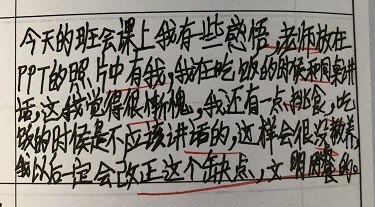 今天的班会课上我有些感悟,老师放在
PPT的照片中有我,我在吃饭的时候和同桌讲
话,这我觉得很惭愧,我还有一点挑食,吃
饭的时候是不应该讲话的,这样会很没教养
我以后一定会改正这个缺点,文明用餐的。